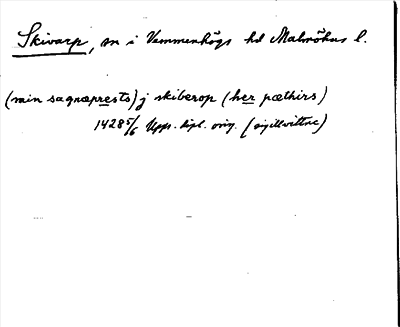 Skivarp, sn i Vemmenhögs hd Malmöhus l.
(min sagnæprests) j skiberop (her pæthirs)
1428 5/6 Upps. dipl. orig. (sigillvittne)